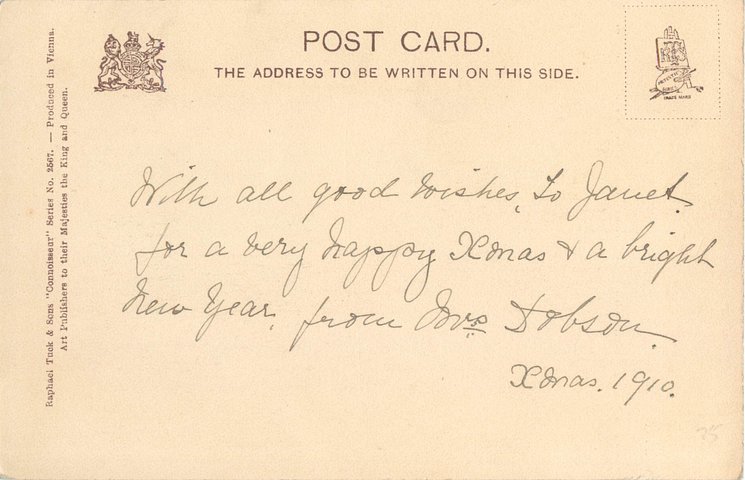 POST CARD.
THE ADDRESS TO BE WRITTEN ON THIS SIDE.
Raphael Tuck & Sons "Connoisseur" Series No. 2567. — Produced in Vienna.
Art Publishers to their Majesties the King and Queen.
TRADE MARK
With all good wishes, to Janet.
for a very happy Xmas & a bright
New Year, from Mrs Dobson.
Xmas. 1910.
75